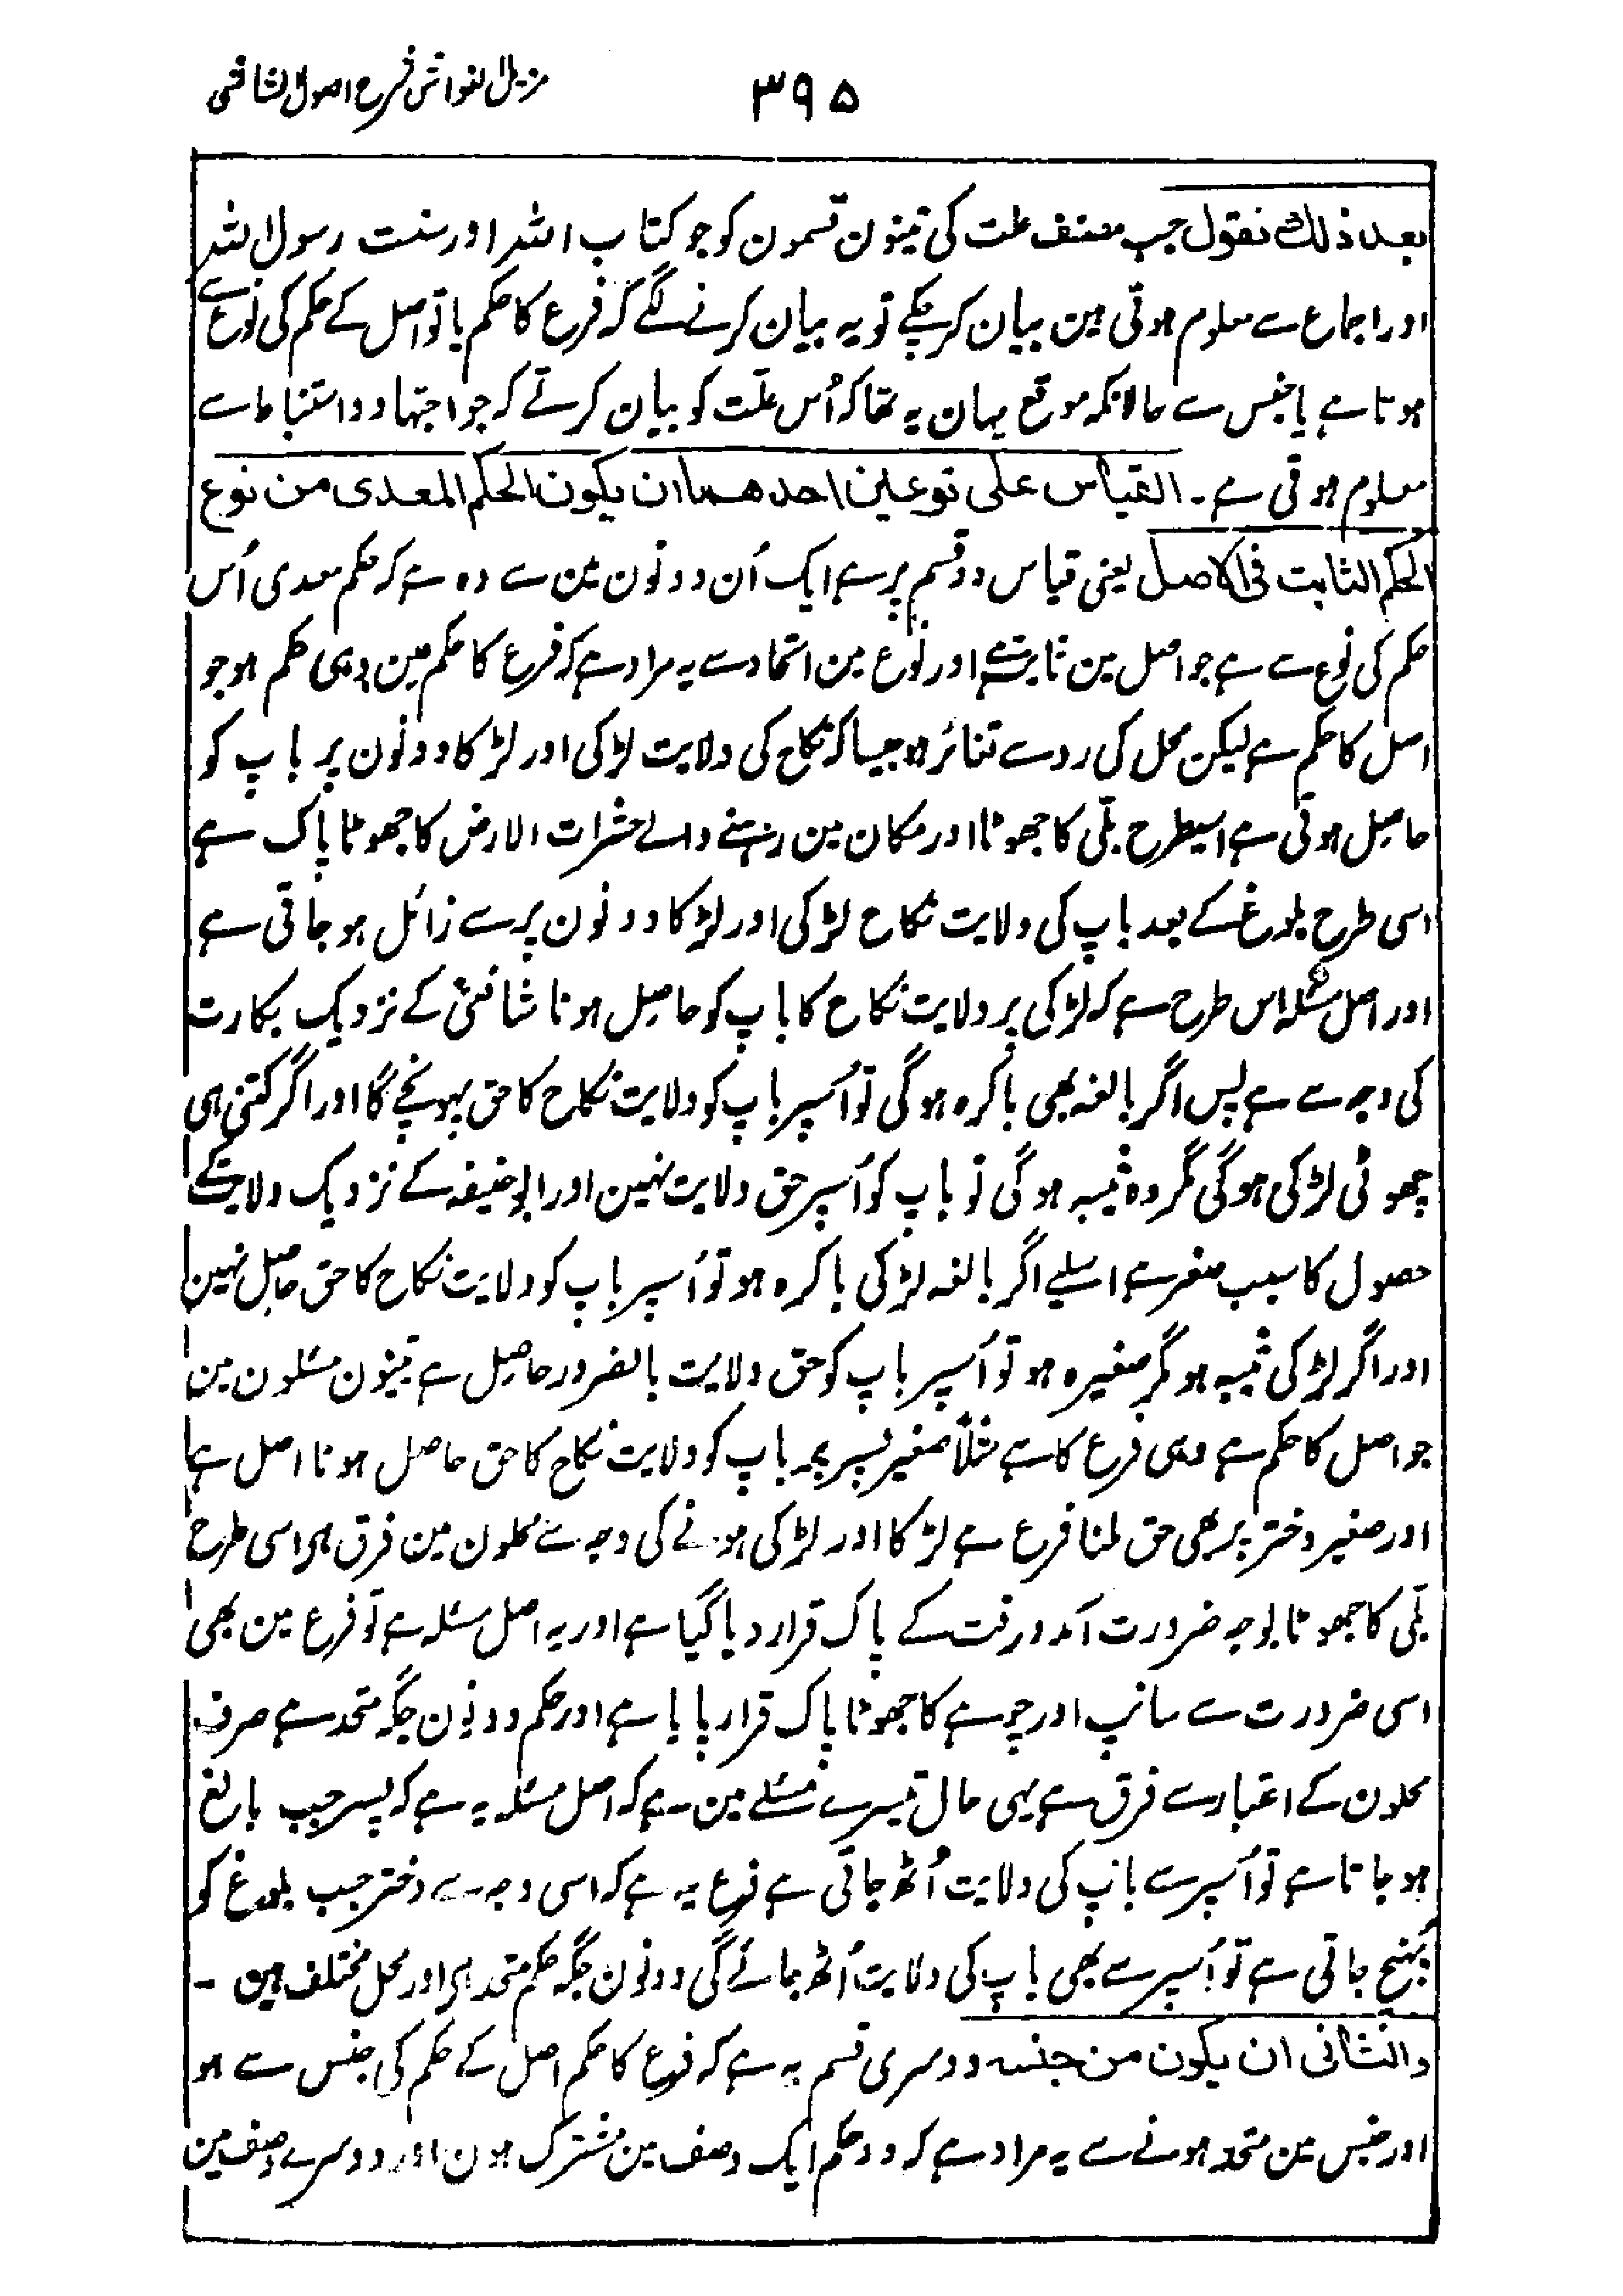 مزیل الغواشی شرح اصول الشاشی
۳۹۵
بعد ذلك نقول جب مصنف علت کی تینون قسمون کو جو کتاب اللہ اور سنت رسول اللہ
اور اجماع سے معلوم ہوتی ہین بیان کر چکے تو یہ بیان کرنے لگے کہ فرع کا حکم یا تو اصل کے حکم کی نوع سے
ہوتا ہے یا جنس سے حالانکہ موقع یہان یہ تھا کہ اُس علّت کو بیان کرتے کہ جو اجتہاد و استنباط سے
معلوم ہوتی ہے۔ القیاس علی نوعین احدهما ان یکون الحکم المعدی من نوع
الحکم الثابت فی الاصل یعنی قیاس دو قسم پر ہے ایک اُن دونون مین سے وہ ہے کہ حکم معدی اُس
حکم کی نوع سے ہے جو اصل مین ثابت ہے اور نوع مین اتحاد سے یہ مراد ہے کہ فرع کا حکم عین وہی حکم ہو جو
اصل کا حکم ہے لیکن محل کی رو سے تغائر ہو جیسا کہ نکاح کی ولایت لڑکی اور لڑکا دونون پر باپ کو
حاصل ہوتی ہے اسیطرح بلّی کا جھوٹا اور مکان مین رہنے والے حشرات الارض کا جھوٹا پاک ہے
اسی طرح بلوغ کے بعد باپ کی ولایت نکاح لڑکی اور لڑکا دونون پر سے زائل ہو جاتی ہے
اور اصل مسئلہ اس طرح ہے کہ لڑکی پر ولایت نکاح کا باپ کو حاصل ہونا شافعیؒ کے نزدیک بکارت
کی وجہ سے ہے پس اگر بالغہ بھی باکرہ ہوگی تو اُسپر باپ کو ولایت نکاح کا حق پہونچے گا اور اگر کتنی ہی
چھوٹی لڑکی ہوگی مگر وہ ثیبہ ہوگی تو باپ کو اُسپر حق ولایت نہین اور ابوحنیفہ کے نزدیک ولایت کے
حصول کا سبب صغر ہے اسلیے اگر بالغہ لڑکی باکرہ ہو تو اُسپر باپ کو ولایت نکاح کا حق حاصل نہین
اور اگر لڑکی ثیبہ ہو مگر صغیرہ ہو تو اُسپر باپ کو حق ولایت بالضرور حاصل ہے تینون مسئلون مین
جو اصل کا حکم ہے وہی فرع کا ہے مثلاً صغیر پسر پر باپ کو ولایت نکاح کا حق حاصل ہونا اصل ہے
اور صغیر دختر پر بھی حق ملنا فرع ہے لڑکا اور لڑکی ہونے کی وجہ سے محلون مین فرق ہی اسی طرح
بلّی کا جھوٹا بوجہ ضرورت آمد و رفت کے پاک قرار دیا گیا ہے اور یہ اصل مسئلہ ہے تو فرع مین بھی
اسی ضرورت سے سانپ اور چوہے کا جھوٹا پاک قرار پایا ہے اور حکم دونون جگہ متحد ہے صرف
محلون کے اعتبار سے فرق ہے یہی حال تیسرے مسئلے مین ہے کہ اصل مسئلہ یہ ہے کہ پسر جب بالغ
ہو جاتا ہے تو اُسپر سے باپ کی ولایت اُٹھ جاتی ہے فرع یہ ہے کہ اسی وجہ سے دختر جب بلوغ کو
پہنچ جاتی ہے تو اُسپر سے بھی باپ کی ولایت اُٹھ جائے گی دونون جگہ حکم متحد ہی اور محل مختلف ہین ۔
والثانی ان یکون من جنسه دوسری قسم یہ ہے کہ فرع کا حکم اصل کے حکم کی جنس سے ہو
اور جنس مین متحد ہونے سے یہ مراد ہے کہ دو حکم ایک وصف مین مشترک ہون اور دوسرے وصف مین